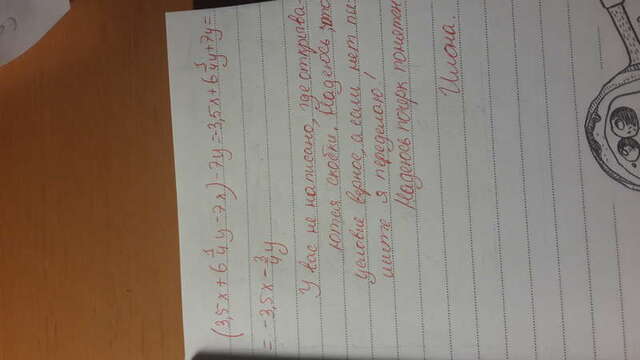 (3,5x + 6 1/4 y - 7x) - 7y = -3,5x + 6 1/4 y + 7y =
= -3,5x - 3/4 y
У вас не написано, где открыва-
ются скобки. Надеюсь, что
условие верное, а если нет пи-
шите я переделаю!
Надеюсь почерк понятен
Илона.